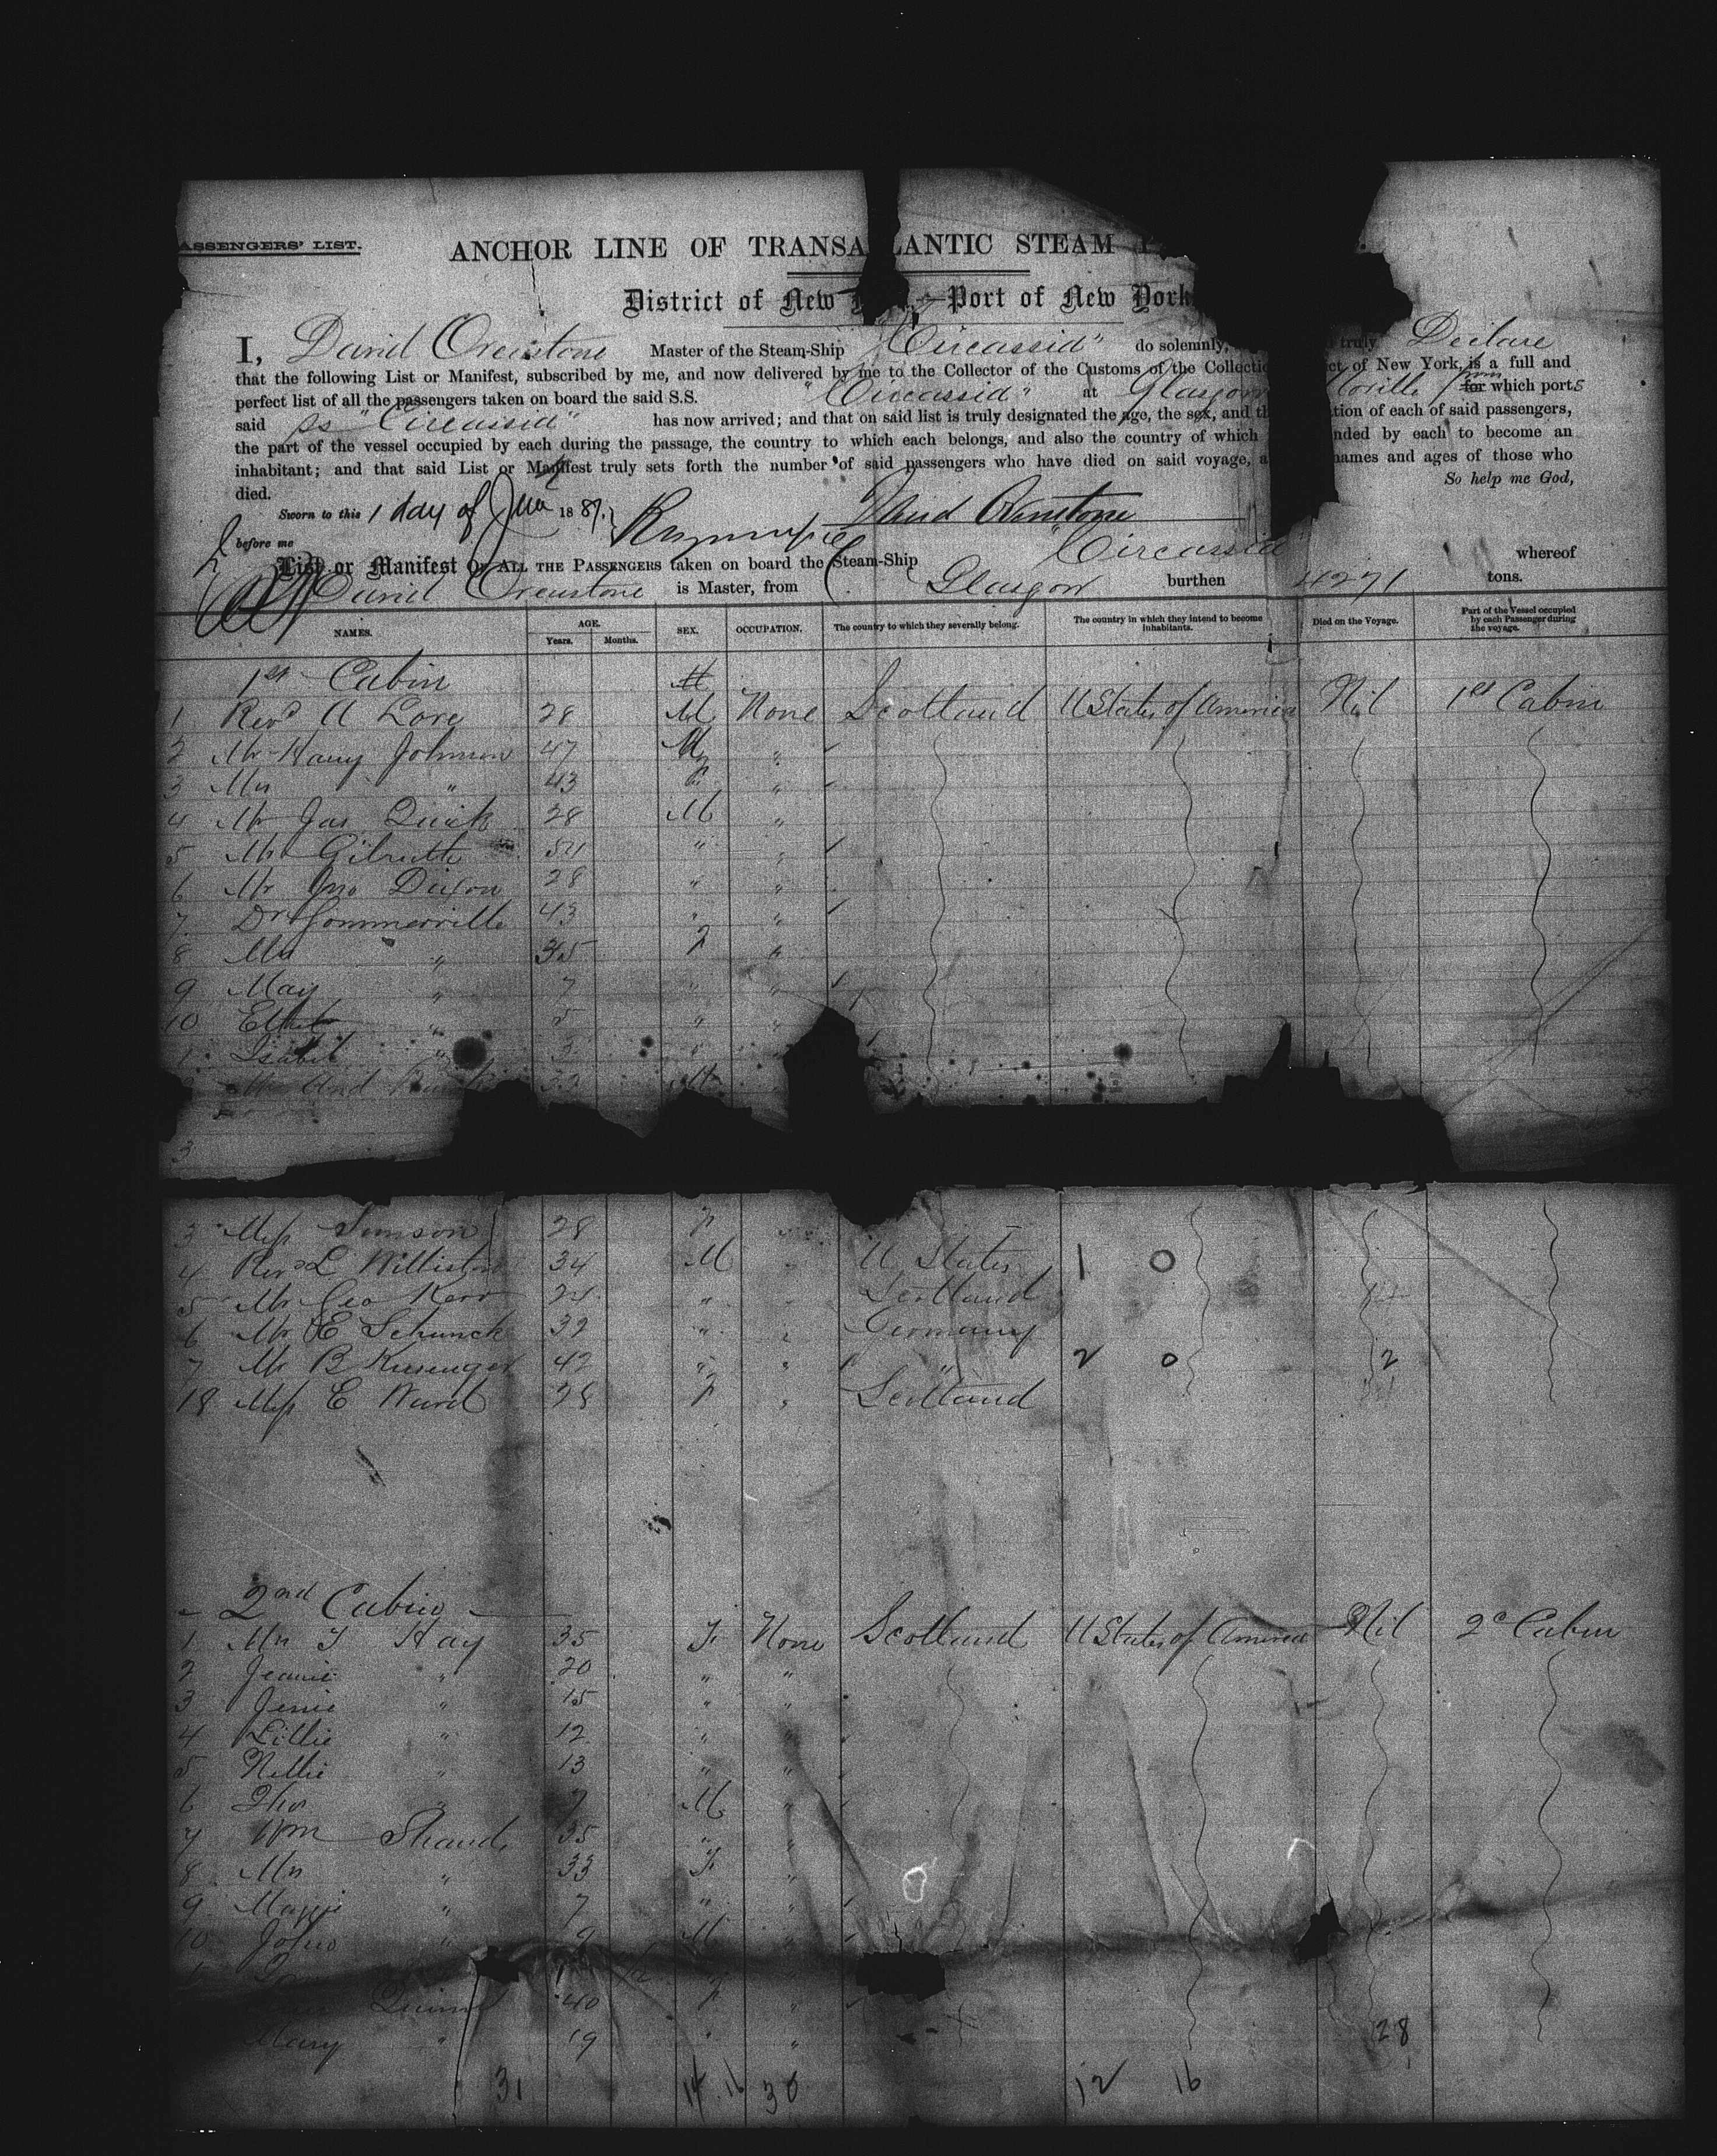 ASSENGERS' LIST.
ANCHOR LINE OF TRANSA LANTIC STEAM
District of New Port of New York
I, David Ovenstone Master of the Steam-Ship "Circassia" do solemnly, truly Declare
that the following List or Manifest, subscribed by me, and now delivered by me to the Collector of the Customs of the Collectio ct of New York, is a full and
perfect list of all the passengers taken on board the said S.S. "Circassia" at Glasgow Moville from for which ports
said Ss "Circassia" has now arrived; and that on said list is truly designated the age, the sex, and th tion of each of said passengers,
the part of the vessel occupied by each during the passage, the country to which each belongs, and also the country of which nded by each to become an
inhabitant; and that said List or Manifest truly sets forth the number of said passengers who have died on said voyage, a names and ages of those who
died. So help me God,
Sworn to this 1 day of June 1887. David Ovenstone
before me
List or Manifest OF ALL THE PASSENGERS taken on board the Steam-Ship "Circassia" whereof
David Ovenstone is Master, from Glasgow burthen 4271 tons.
NAMES. AGE. Years. Months. SEX. OCCUPATION. The country to which they severally belong. The country in which they intend to become inhabitants. Died on the Voyage. Part of the Vessel occupied by each Passenger during the voyage.
1st Cabin
1 Revd A Love 28 M None Scotland U States of America Nil 1st Cabin
2 Mr Harry Johnson 47 M "
3 Mrs " 43 F "
4 Mr Jas Quick 28 M "
5 Mr Gilruth 54 " "
6 Mr Jno Dixon 28 " "
7 Dr Sommerville 43 " "
8 Mrs " 35 F "
9 May " 7 " "
10 Ethel " 5 " "
1 Isabel " 3 "
Mr And 33 M
3
3 Miss Simson 28 F "
4 Revd L Williston 34 M " U States 1 0
5 Mr Geo Kerr 24 " " Scotland
6 Mr E Schunck 32 " " Germany
7 Mr B Kissinger 42 " " " 2 0 2
18 Miss E Ward 28 F " Scotland
2nd Cabin
1 Mrs T Hay 35 F None Scotland U States of America Nil 2c Cabin
2 Jeanie " 20 " "
3 Jessie " 15 " "
4 Lillie " 12 " "
5 Nellie " 13 " "
6 Thos " 7 M "
7 Wm Shand 35 " "
8 Mrs " 33 F "
9 Maggie " 7 " "
10 John " 9 M "
Quinn 40 F "
Mary " 19 " "
28
31 14 16 30 12 16